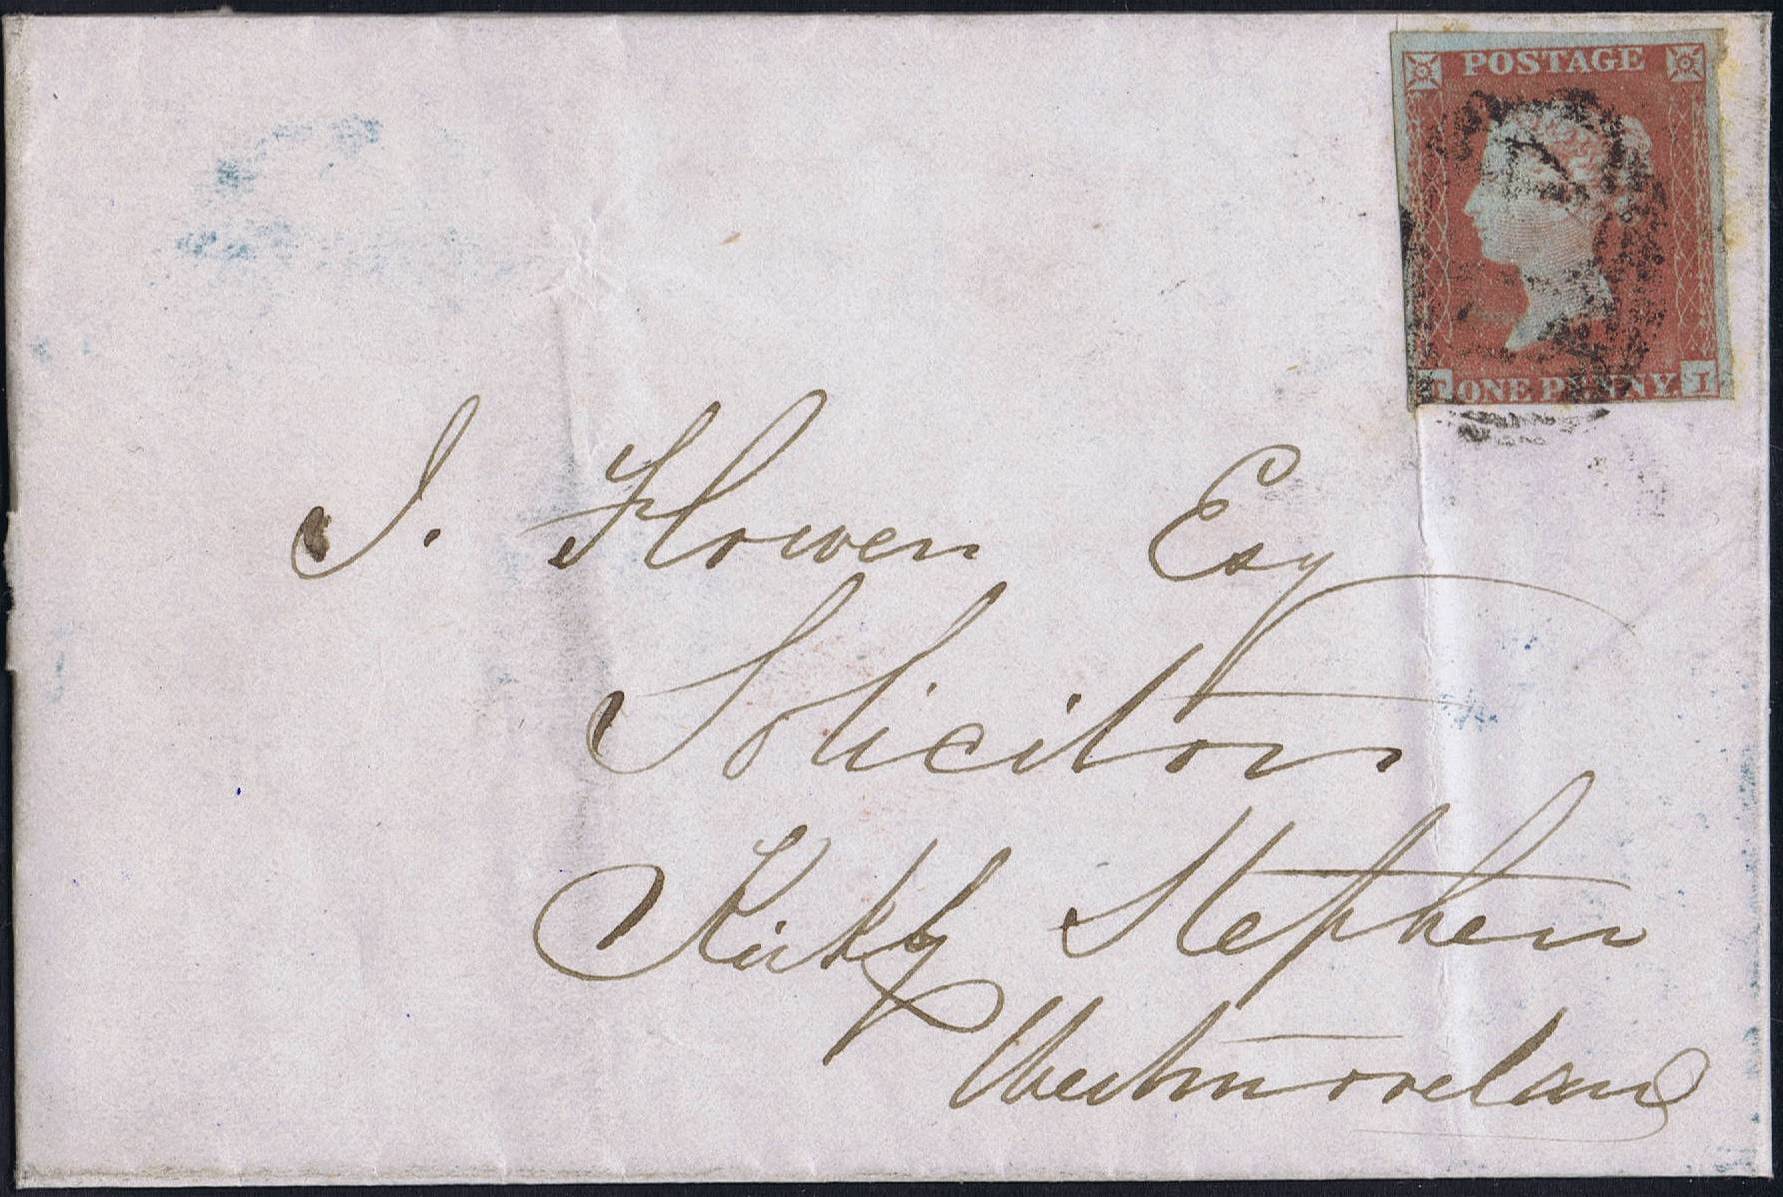 POSTAGE
ONE PENNY.
I
J. Flower Esq
Solicitor
Kirkby Stephen
Westmoreland